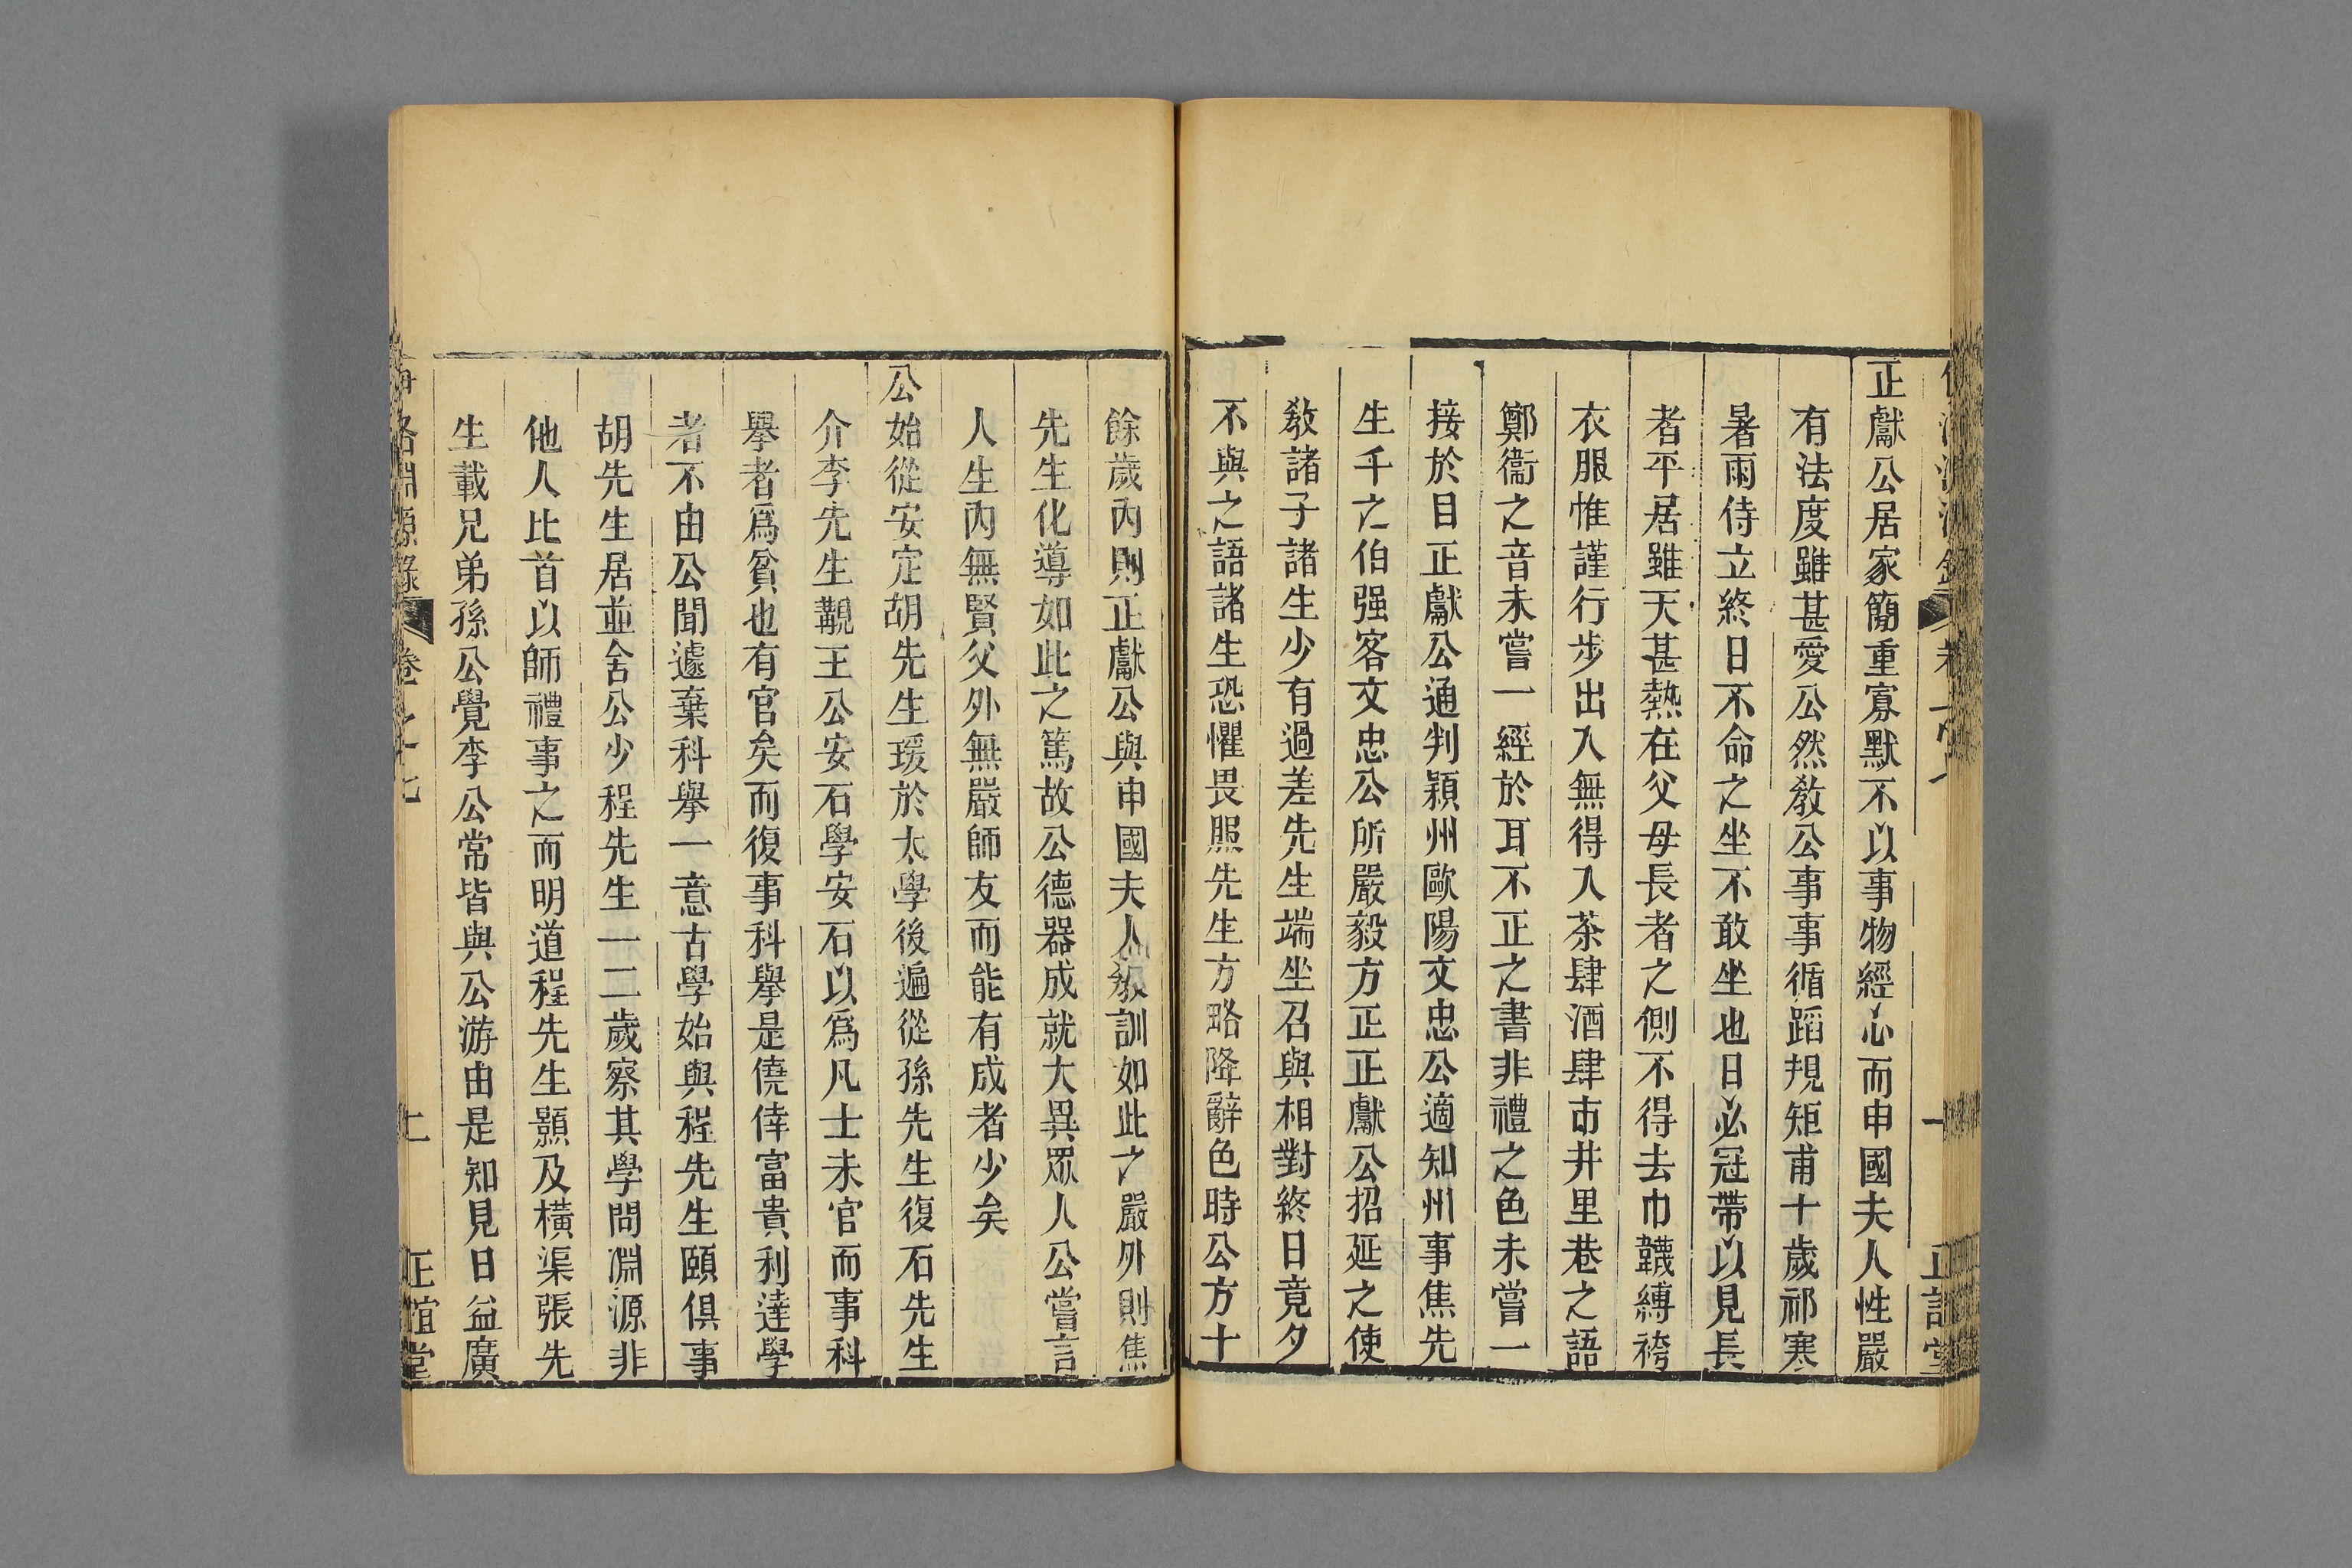 正獻公居家簡重寡默不以事物經心而申國夫人性嚴
有法度雖甚愛公然敎公事事循蹈規矩甫十歲祁寒
暑雨侍立終日不命之坐不敢坐也日必冠帶以見長
者平居雖天甚熱在父母長者之側不得去巾韈縛袴
衣服惟謹行步出入無得入茶肆酒肆市井里巷之語
鄭衞之音未嘗一經於耳不正之書非禮之色未嘗一
接於目正獻公通判潁州歐陽文忠公適知州事焦先
生千之伯强客文忠公所嚴毅方正正獻公招延之使
敎諸子諸生少有過差先生端坐召與相對終日竟夕
不與之語諸生恐懼畏服先生方略降辭色時公方十
餘歲內則正獻公與申國夫人敎訓如此之嚴外則焦
先生化導如此之篤故公德器成就大異眾人公嘗言
人生內無賢父外無嚴師友而能有成者少矣
公始從安定胡先生瑗於太學後遍從孫先生復石先生
介李先生覯王公安石學安石以爲凡士未官而事科
擧者爲貧也有官矣而復事科擧是僥倖富貴利達學
者不由公聞遽棄科擧一意古學始與程先生頤俱事
胡先生居並舍公少程先生一二歲察其學問淵源非
他人比首以師禮事之而明道程先生顥及橫渠張先
生載兄弟孫公覺李公常皆與公游由是知見日益廣
洛淵源錄 卷之七 七 正誼堂